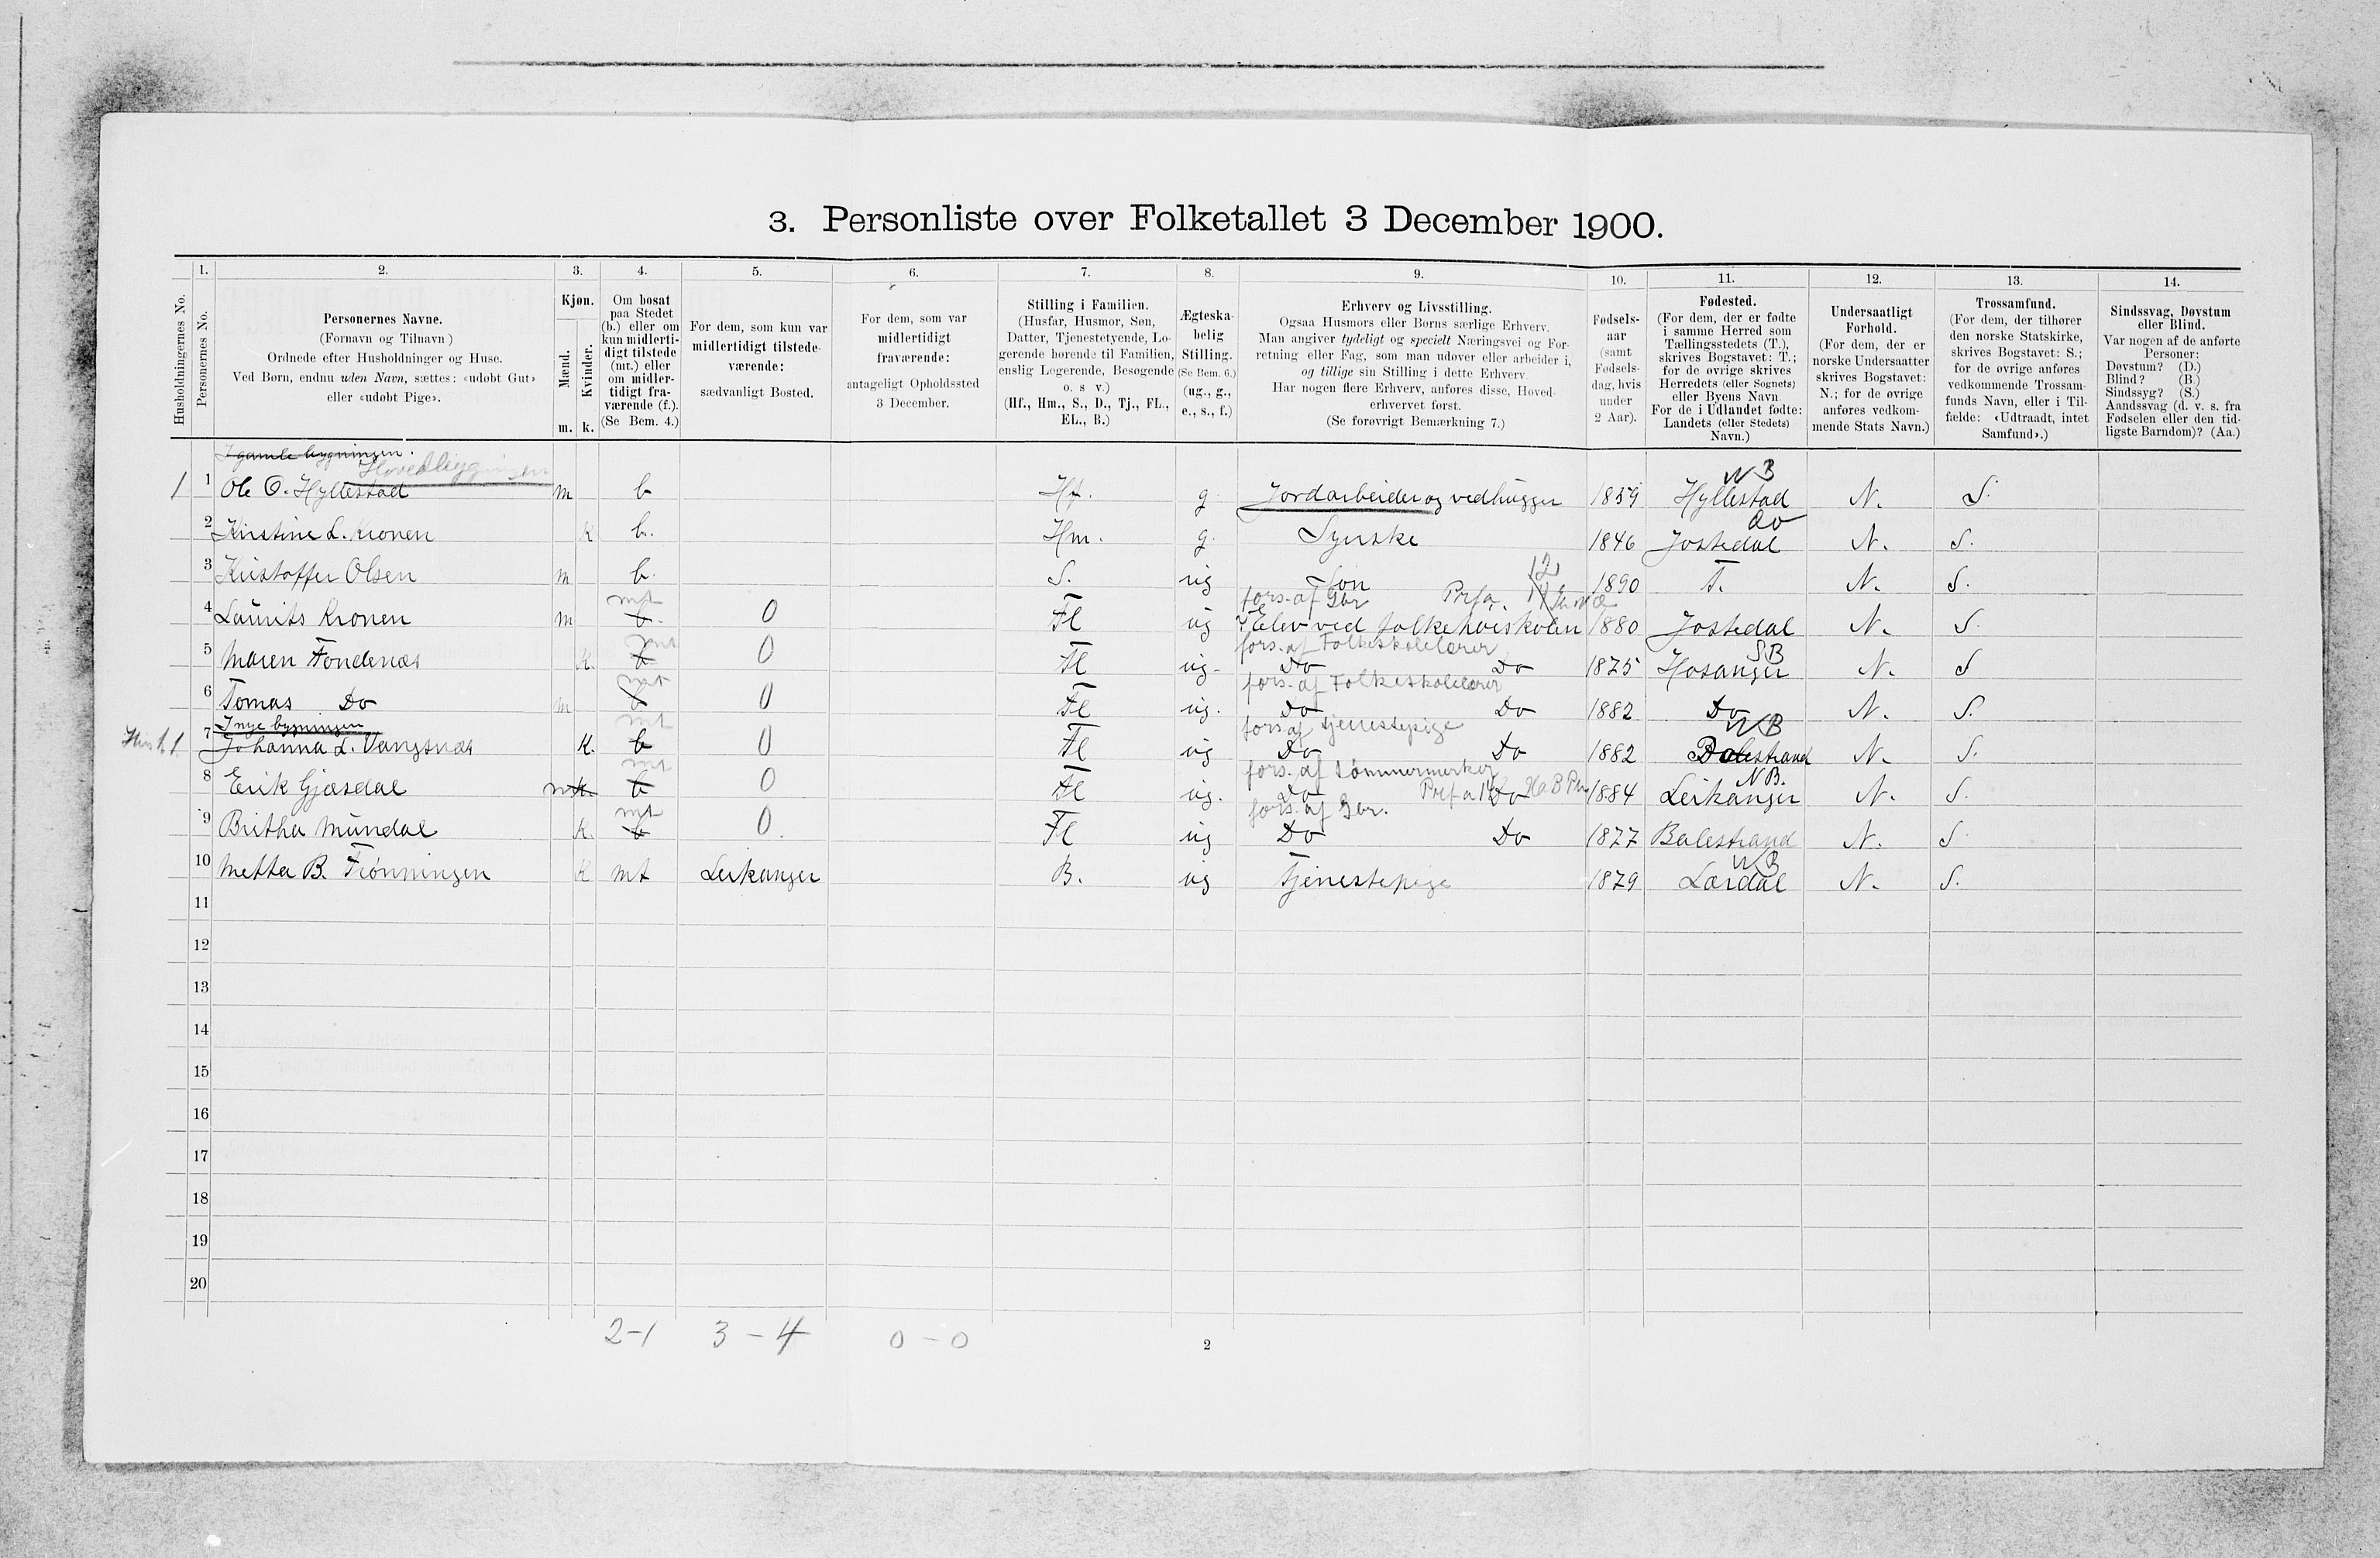 3. Personliste over Folketallet 3 December 1900.
1. 2. 3. 4. 5. 6. 7. 8. 9. 10. 11. 12. 13. 14.
Husholdningernes No.
Personernes No.
Personernes Navne.
(Fornavn og Tilnavn)
Ordnede efter Husholdninger og Huse.
Ved Børn, endnu uden Navn, sættes: «udøbt Gut»
eller «udøbt Pige».
Kjøn.
Mænd.
Kvinder.
m. k.
Om bosat
paa Stedet
(b.) eller om
kun midlerti-
digt tilstede
(mt.) eller
om midler-
tidigt fra-
værende (f.).
(Se Bem. 4.)
For dem, som kun var
midlertidigt tilstede-
værende:
sædvanligt Bosted.
For dem, som var
midlertidigt
fraværende:
antageligt Opholdssted
3 December.
Stilling i Familien.
(Husfar, Husmor, Søn,
Datter, Tjenestetyende, Lo-
gerende hørende til Familien,
enslig Logerende, Besøgende
o. s v.)
(Hf., Hm., S., D., Tj., FL.,
EL., B.)
Ægteska-
belig
Stilling.
(Se Bem. 6.)
(ug., g.,
e., s., f.)
Erhverv og Livsstilling.
Ogsaa Husmors eller Børns særlige Erhverv.
Man angiver tydeligt og specielt Næringsvei og For-
retning eller Fag, som man udøver eller arbeider i,
og tillige sin Stilling i dette Erhverv
Har nogen flere Erhverv, anføres disse, Hoved-
erhvervet først.
(Se forøvrigt Bemærkning 7.)
Fødsels-
aar
(samt
Fødsels-
dag, hvis
under
2 Aar).
Fødested.
(For dem, der er fødte
i samme Herred som
Tællingsstedets (T.),
skrives Bogstavet: T.;
for de øvrige skrives
Herredets (eller Sognets)
eller Byens Navn
For de i Udlandet fødte:
Landets (eller Stedets)
Navn.)
Undersaatligt
Forhold.
(For dem, der er
norske Undersaatter
skrives Bogstavet:
N.; for de øvrige
anføres vedkom-
mende Stats Navn.)
Trossamfund.
(For dem, der tilhører
den norske Statskirke,
skrives Bogstavet: S.;
for de øvrige anføres
vedkommende Trossam-
funds Navn, eller i Til-
fælde: «Udtraadt, intet
Samfund».)
Sindssvag, Døvstum
eller Blind.
Var nogen af de anførte
Personer:
Døvstum? (D.)
Blind? (B.)
Sindssyg? (S.)
Aandssvag (d. v. s. fra
Fødselen eller den tid-
ligste Barndom)? (Aa.)
I gamle bygningen.
Hovedbygningen
NB
1 1 Ole O. Hyllestad m b Hf. g Jordarbeider og vedhugger 1859 Hyllestad N. S.
do
2 Kirstine L. Kronen K b. Hm. g. Syerske 1846 Jostedal N. S.
3 Kristoffer Olsen m b. S. ug Søn 1890 T. N. S.
mt fors. af Gbr
4 Laurits Kronen m b. 0 Fl ug Elev ved folkehøiskolen 1880 Jostedal N. S.
mt fors. af Folkeskolelærer SB
5 Maren Fondenæs K. b 0 Fl ug. Do Do 1875 Hosanger N. S
mt fors. af Folkeskolelærer
6 Tomas Do m b 0 Fl ug. Do Do 1882 Do N. S.
I nye bygningen mt fors af tjenestepige NB
7 Johanna L. Vangsnæs K. b 0 Fl ug Do Do 1882 Balestrand N. S.
mt fors. af tømmermerker NB.
8 Erik Gjæsdal m K. b 0 Fl ug. Do Do 1884 Leikanger N. S.
mt fors. af Gbr.
9 Britha Mundal K. b 0. Fl ug Do Do 1877 Balestrand N. S
NB
10 Metta B. Frønningen K mt Leikanger B. ug Tjenestepige 1879 Lærdal N. S.
11
12
13
14
15
16
17
18
19
20
2-1 3-4 0-0
2